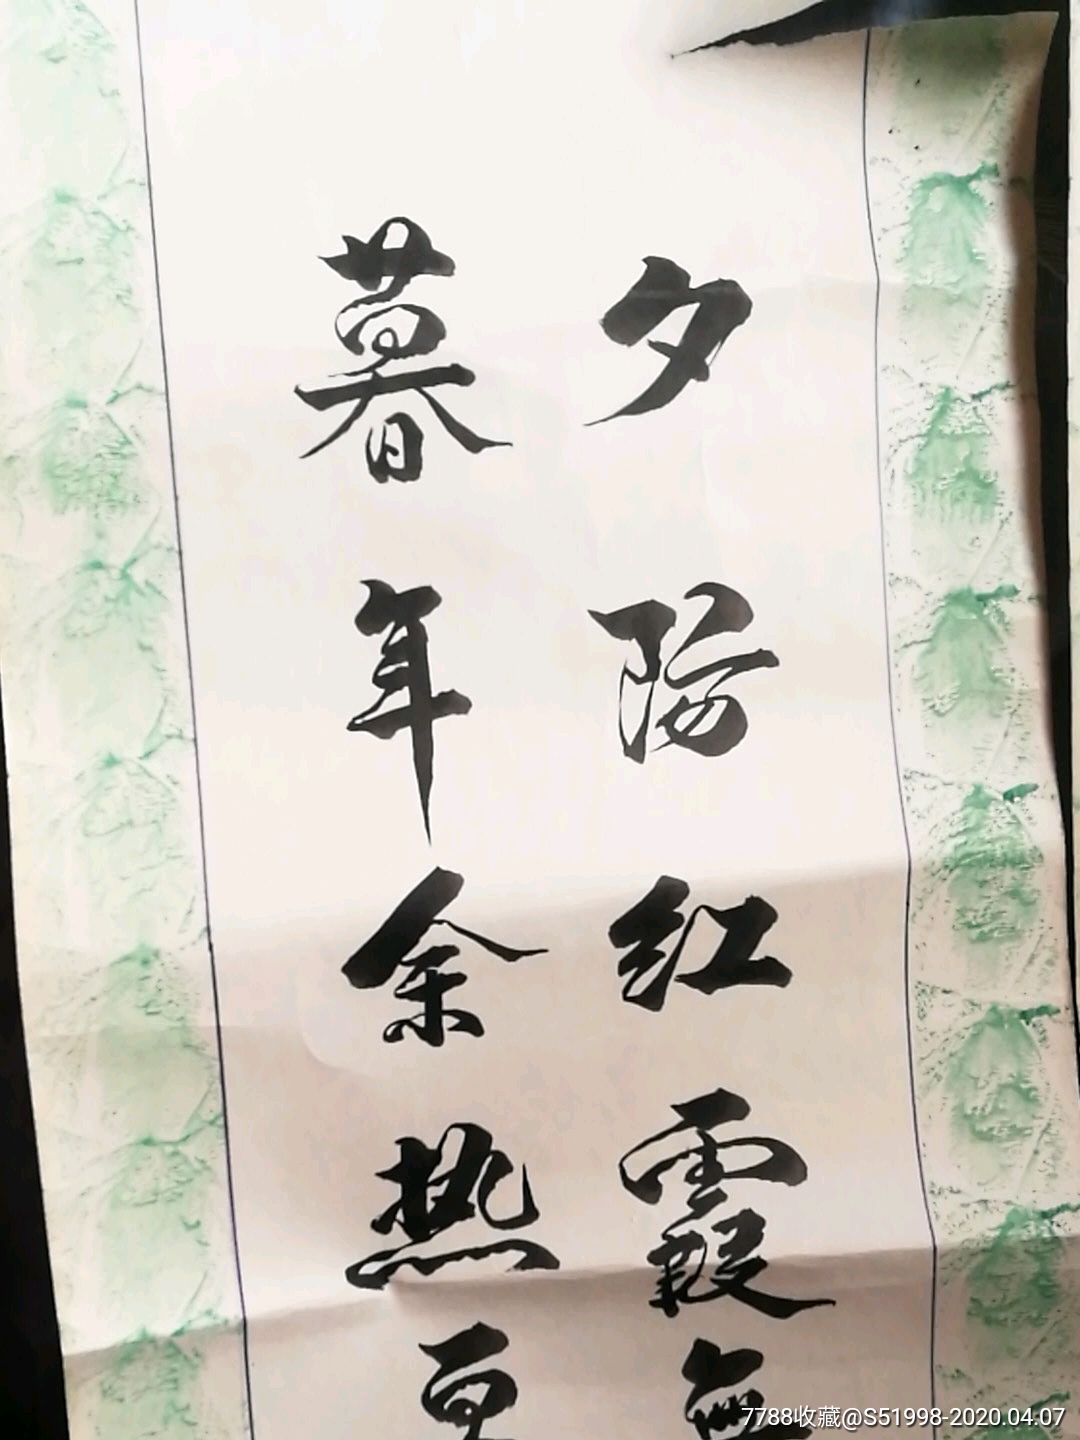 夕阳红霞無
暮年余热更
7788收藏@S51998-2020.04.07